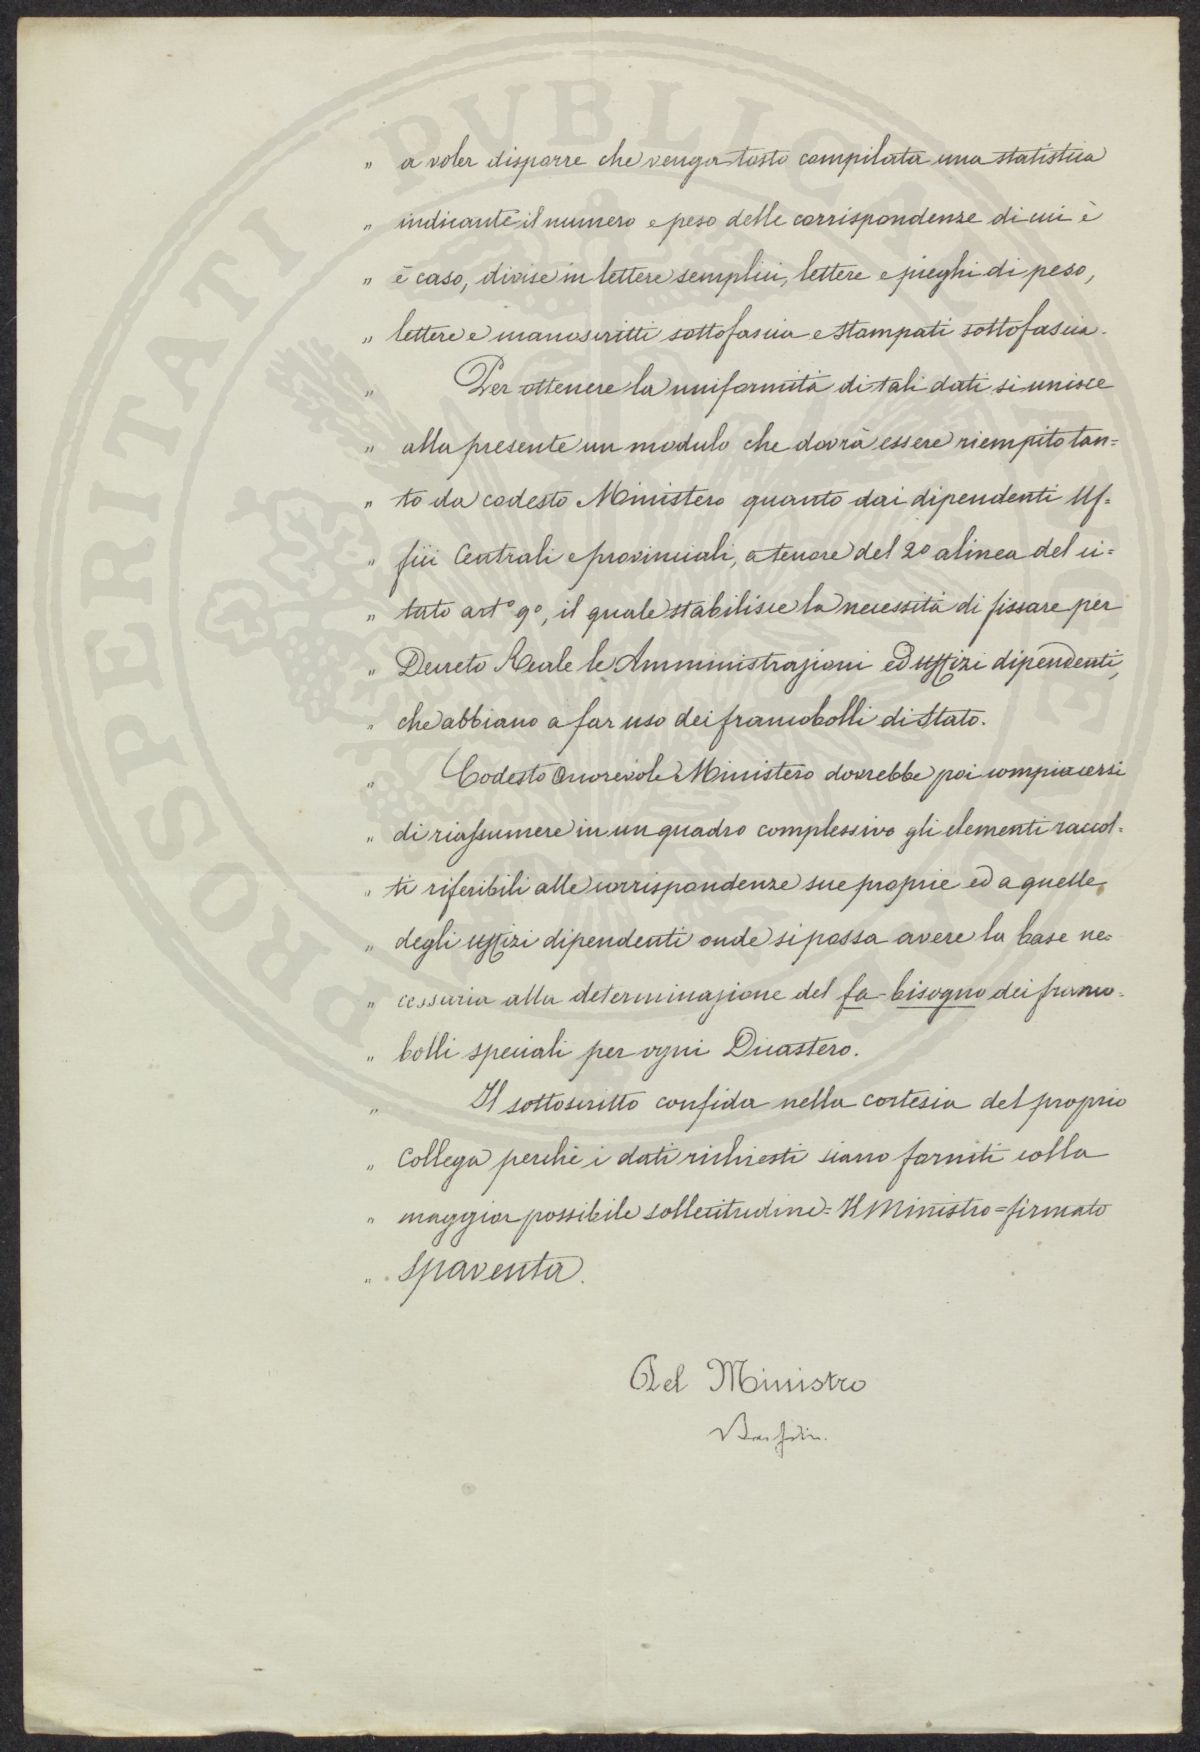 " a voler disporre che venga tosto compilata una statistica
" indicante il numero e peso delle corrispondenze di cui è
" è caso, divise in lettere semplici, lettere e pieghi di peso,
" lettere e manoscritti sottofascia e stampati sottofascia.
" Per ottenere la uniformità di tali dati si unisce
" alla presente un modulo che dovrà essere riempito tan=
" to da codesto Ministero quanto dai dipendenti Uf=
" fici Centrali e provinciali, a tenore del 2º alinea del ci=
" tato artº 9º, il quale stabilisce la necessità di fissare per
" Decreto Reale le Amministrazioni ed uffizi dipendenti,
" che abbiano a far uso dei francobolli di Stato.
" Codesto Onorevole Ministero dovrebbe poi compiacersi
" di riassumere in un quadro complessivo gli elementi raccol=
" ti riferibili alle corrispondenze sue proprie ed a quelle
" degli uffizi dipendenti onde si possa avere la base ne=
" cessaria alla determinazione del fa-bisogno dei franco=
" bolli speciali per ogni Dicastero.
" Il sottoscritto confida nella cortesia del proprio
" Collega perchè i dati richiesti siano forniti colla
" maggior possibile sollecitudine = Il Ministro = firmato
" Spaventa.
Pel Ministro
PROSPERITATI PUBLICAE AUGENDAE